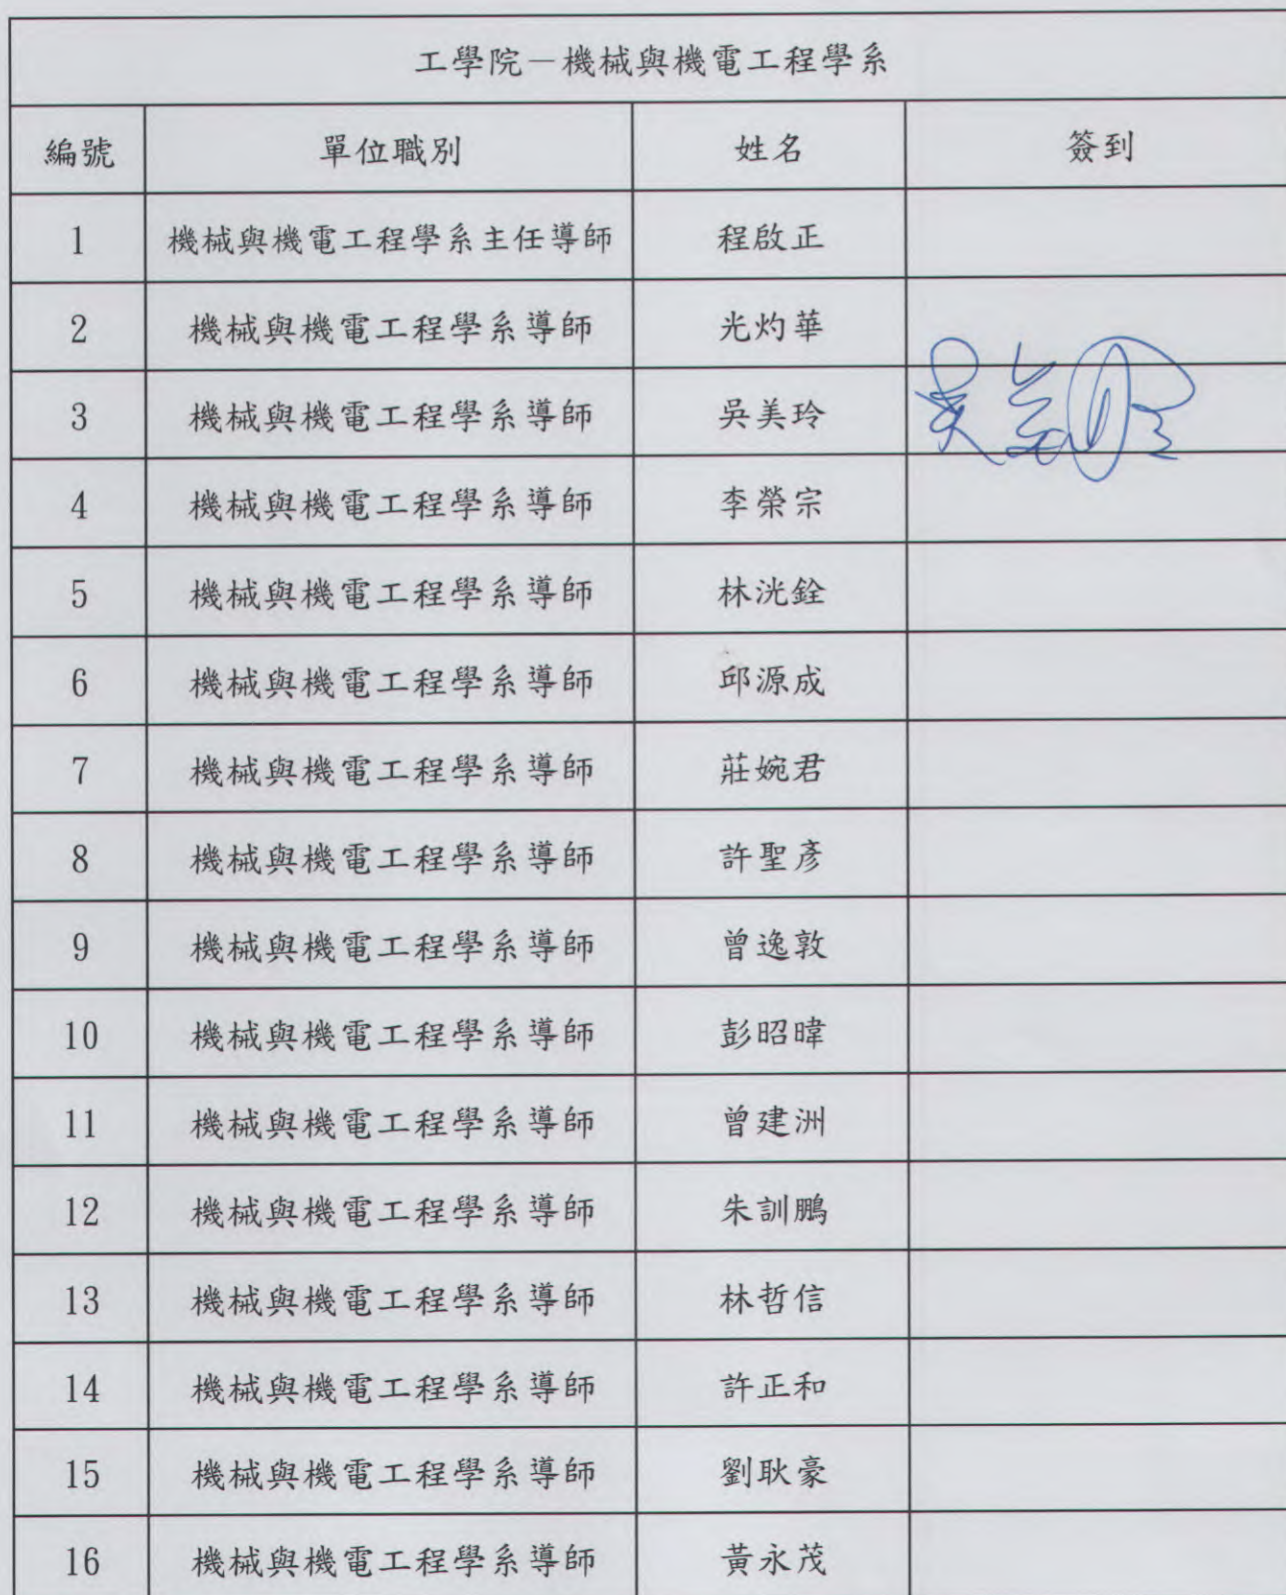 工學院－機械與機電工程學系
編號 單位職別 姓名 簽到
1 機械與機電工程學系主任導師 程啟正
2 機械與機電工程學系導師 光灼華
3 機械與機電工程學系導師 吳美玲 吳美玲
4 機械與機電工程學系導師 李榮宗
5 機械與機電工程學系導師 林洸銓
6 機械與機電工程學系導師 邱源成
7 機械與機電工程學系導師 莊婉君
8 機械與機電工程學系導師 許聖彥
9 機械與機電工程學系導師 曾逸敦
10 機械與機電工程學系導師 彭昭暐
11 機械與機電工程學系導師 曾建洲
12 機械與機電工程學系導師 朱訓鵬
13 機械與機電工程學系導師 林哲信
14 機械與機電工程學系導師 許正和
15 機械與機電工程學系導師 劉耿豪
16 機械與機電工程學系導師 黃永茂